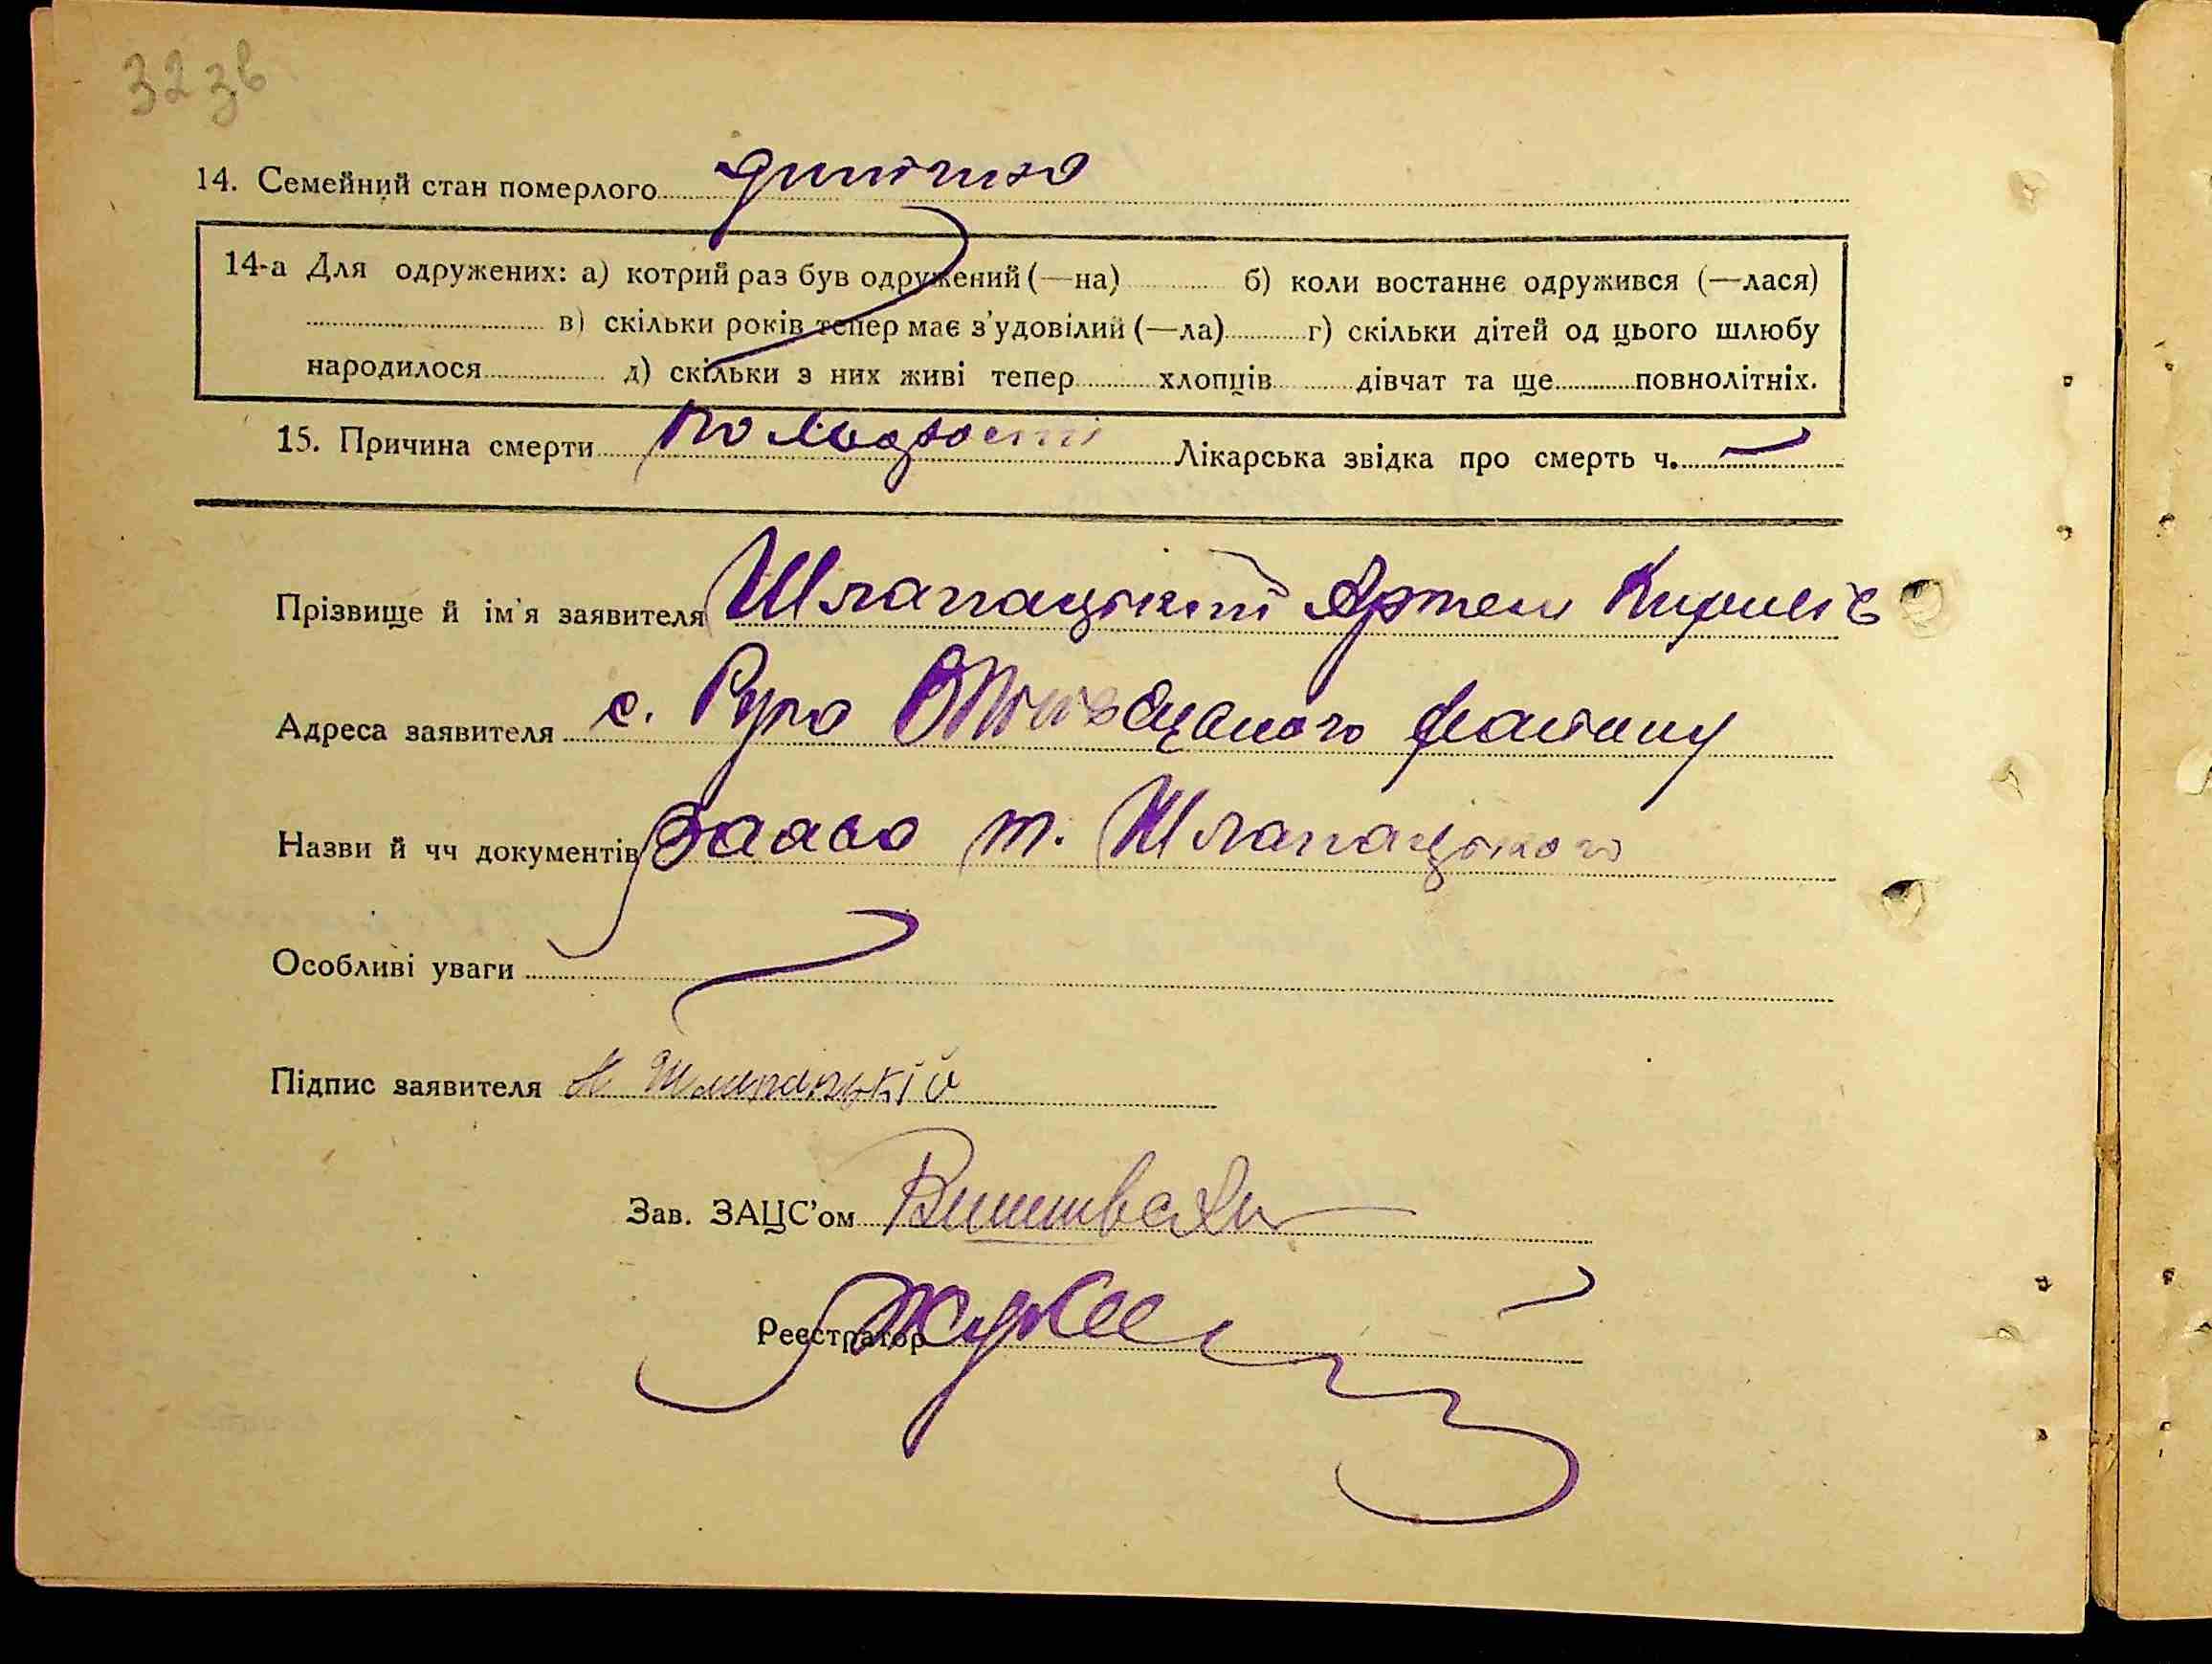 32 зв
14. Семейний стан померлого дитина
14-а Для одружених: а) котрий раз був одружений (—на) б) коли востаннє одружився (—лася)
в) скільки років тепер має з'удовілий (—ла) г) скільки дітей од цього шлюбу
народилося д) скільки з них живі тепер хлопців дівчат та ще повнолітніх.
15. Причина смерти по Лікарська звідка про смерть ч. —
Прізвище й ім'я заявителя Шлапацький Артем Кирилів
Адреса заявителя с. Рура району
Назви й чч документів Заява т. Шлапацького
Особливі уваги
Підпис заявителя
Зав. ЗАЦС'ом
Реєстратор